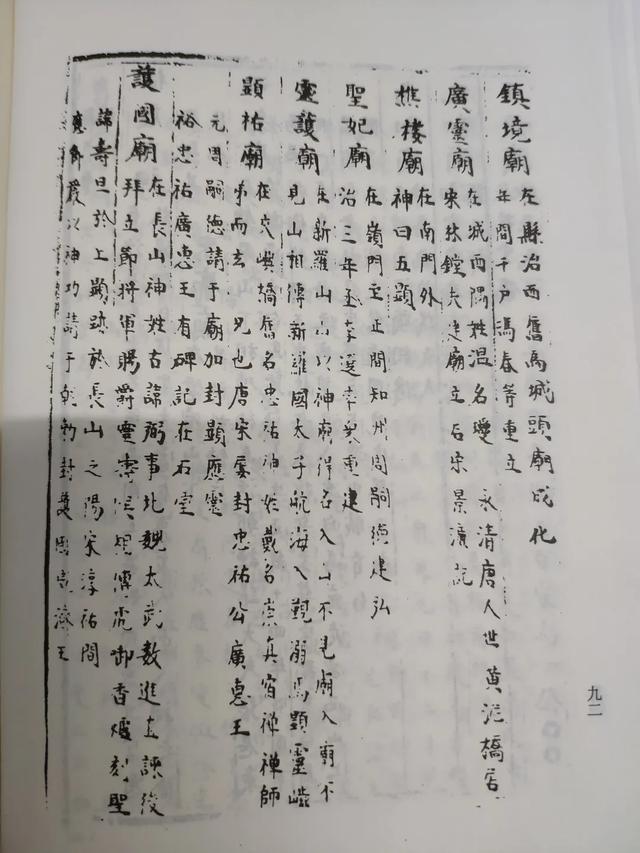 鎮境廟在縣治西舊爲城頭廟成化
年間千户馮春等重立
廣靈廟在城西隅姓温名瓊永清唐人世黄泥橋居
宋林鏜夫建廟立后宋景濂記
樵楼廟在南門外
神曰五顯
聖妃廟在嶺門至正間知州周嗣德建弘
治三年丞李選率衆重建
靈護廟在新羅山山以神廟得名入山不見廟入廟不
見山相傳新羅國太子航海入覲溺焉顯靈
顯祐廟在橋舊名忠祐神姓戴名崇真宿禅禅師
弟而玄兄也唐宋屡封忠祐公廣惠王
元周嗣德請于廟加封顯應靈
裕忠祐廣惠王有碑記在石室
護國廟在長山神姓古諱弼事北魏太武数進直諫後
拜立節將軍賜爵靈壽侯相傳香爐刻聖
諱壽旦於上顯跡於長山之陽宋淳祐間
以神功請于朝勅封護國濟王
九二